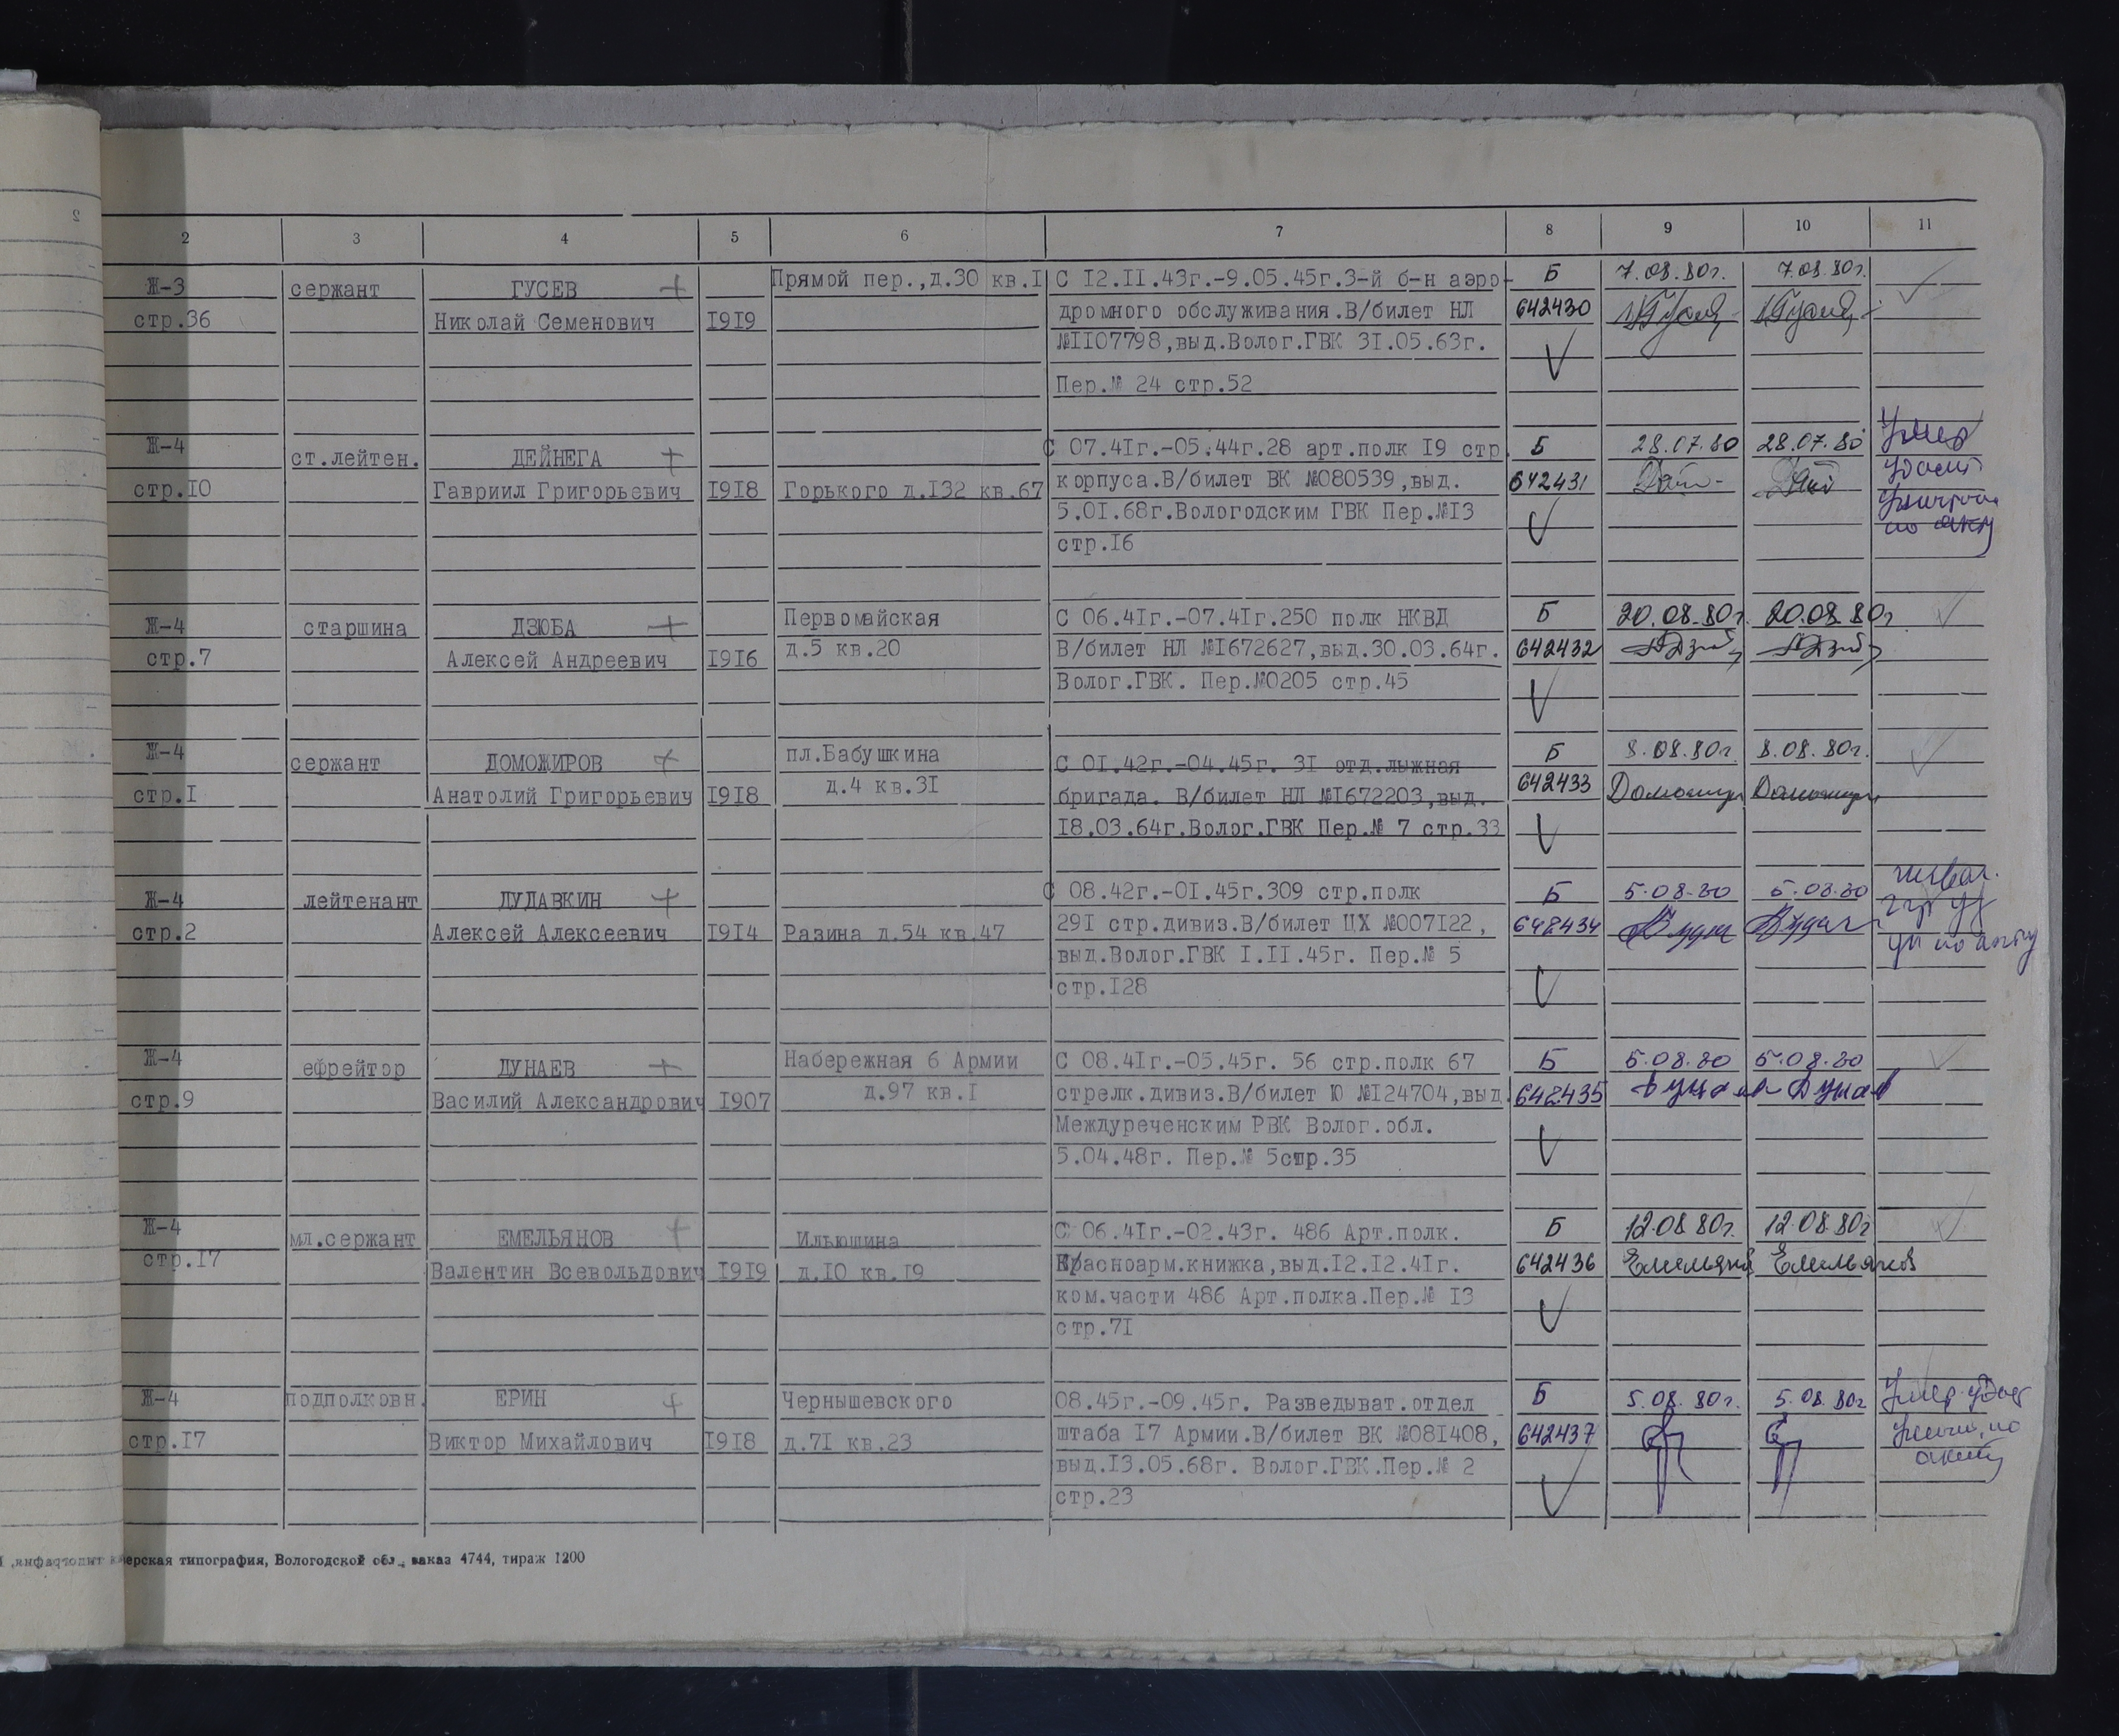 2 3 4 5 6 7 8 9 10 11
Ж-3 сержант ГУСЕВ + Прямой пер.,д.30 кв.I С I2.II.43г.-9.05.45г.3-й б-н аэро- Б 7.08.80г. 7.08.80г.
стр.36 Николай Семенович I9I9 дромного обслуживания.В/билет НЛ 642430
№II07798,выд.Волог.ГВК 3I.05.63г.
Пер.№ 24 стр.52
Ж-4 ст.лейтен. ДЕЙНЕГА + С 07.4Iг.-05.44г.28 арт.полк I9 стр. Б 28.07.80 28.07.80 Умер
стр.I0 Гавриил Григорьевич I9I8 Горького д.I32 кв.67 корпуса.В/билет ВК №080539,выд. 642431
5.0I.68г.Вологодским ГВК Пер.№I3
стр.I6 по акту
Ж-4 старшина ДЗЮБА + Первомайская С 06.4Iг.-07.4Iг.250 полк НКВД Б 20.08.80г. 20.08.80г.
стр.7 Алексей Андреевич I9I6 д.5 кв.20 В/билет НЛ №I672627,выд.30.03.64г. 642432
Волог.ГВК. Пер.№0205 стр.45
Ж-4 сержант ДОМОЖИРОВ + пл.Бабушкина С 0I.42г.-04.45г. 3I отд.лыжная Б 8.08.80г. 8.08.80г.
стр.I Анатолий Григорьевич I9I8 д.4 кв.3I бригада. В/билет НЛ №I672203,выд. 642433
I8.03.64г.Волог.ГВК Пер.№ 7 стр.33
Ж-4 лейтенант ДУДАВКИН + С 08.42г.-0I.45г.309 стр.полк Б 5.08.80 5.08.80
стр.2 Алексей Алексеевич I9I4 Разина д.54 кв.47 29I стр.дивиз.В/билет ЦХ №007I22, 642434
выд.Волог.ГВК I.II.45г. Пер.№ 5 по акту
стр.I28
Ж-4 ефрейтор ДУНАЕВ + Набережная 6 Армии С 08.4Iг.-05.45г. 56 стр.полк 67 Б 5.08.80 5.08.80
стр.9 Василий Александрович I907 д.97 кв.I стрелк.дивиз.В/билет Ю №I24704,выд. 642435 Дунаев Дунаев
Междуреченским РВК Волог.обл.
5.04.48г. Пер.№ 5стр.35
Ж-4 мл.сержант ЕМЕЛЬЯНОВ + Ильюшина С 06.4Iг.-02.43г. 486 Арт.полк. Б 12.08.80г. 12.08.80г
стр.I7 Валентин Всевольдович I9I9 д.I0 кв.I9 Красноарм.книжка,выд.I2.I2.4Iг. 642436 Емельянов Емельянов
ком.части 486 Арт.полка.Пер.№ I3
стр.7I
Ж-4 подполковн. ЕРИН + Чернышевского 08.45г.-09.45г. Разведыват.отдел Б 5.08.80г. 5.08.80г Умер удос
стр.I7 Виктор Михайлович I9I8 д.7I кв.23 штаба I7 Армии.В/билет ВК №08I408, 642437 по
выд.I3.05.68г. Волог.ГВК.Пер.№ 2 акту
стр.23
ерская типография, Вологодской обл., заказ 4744, тираж 1200